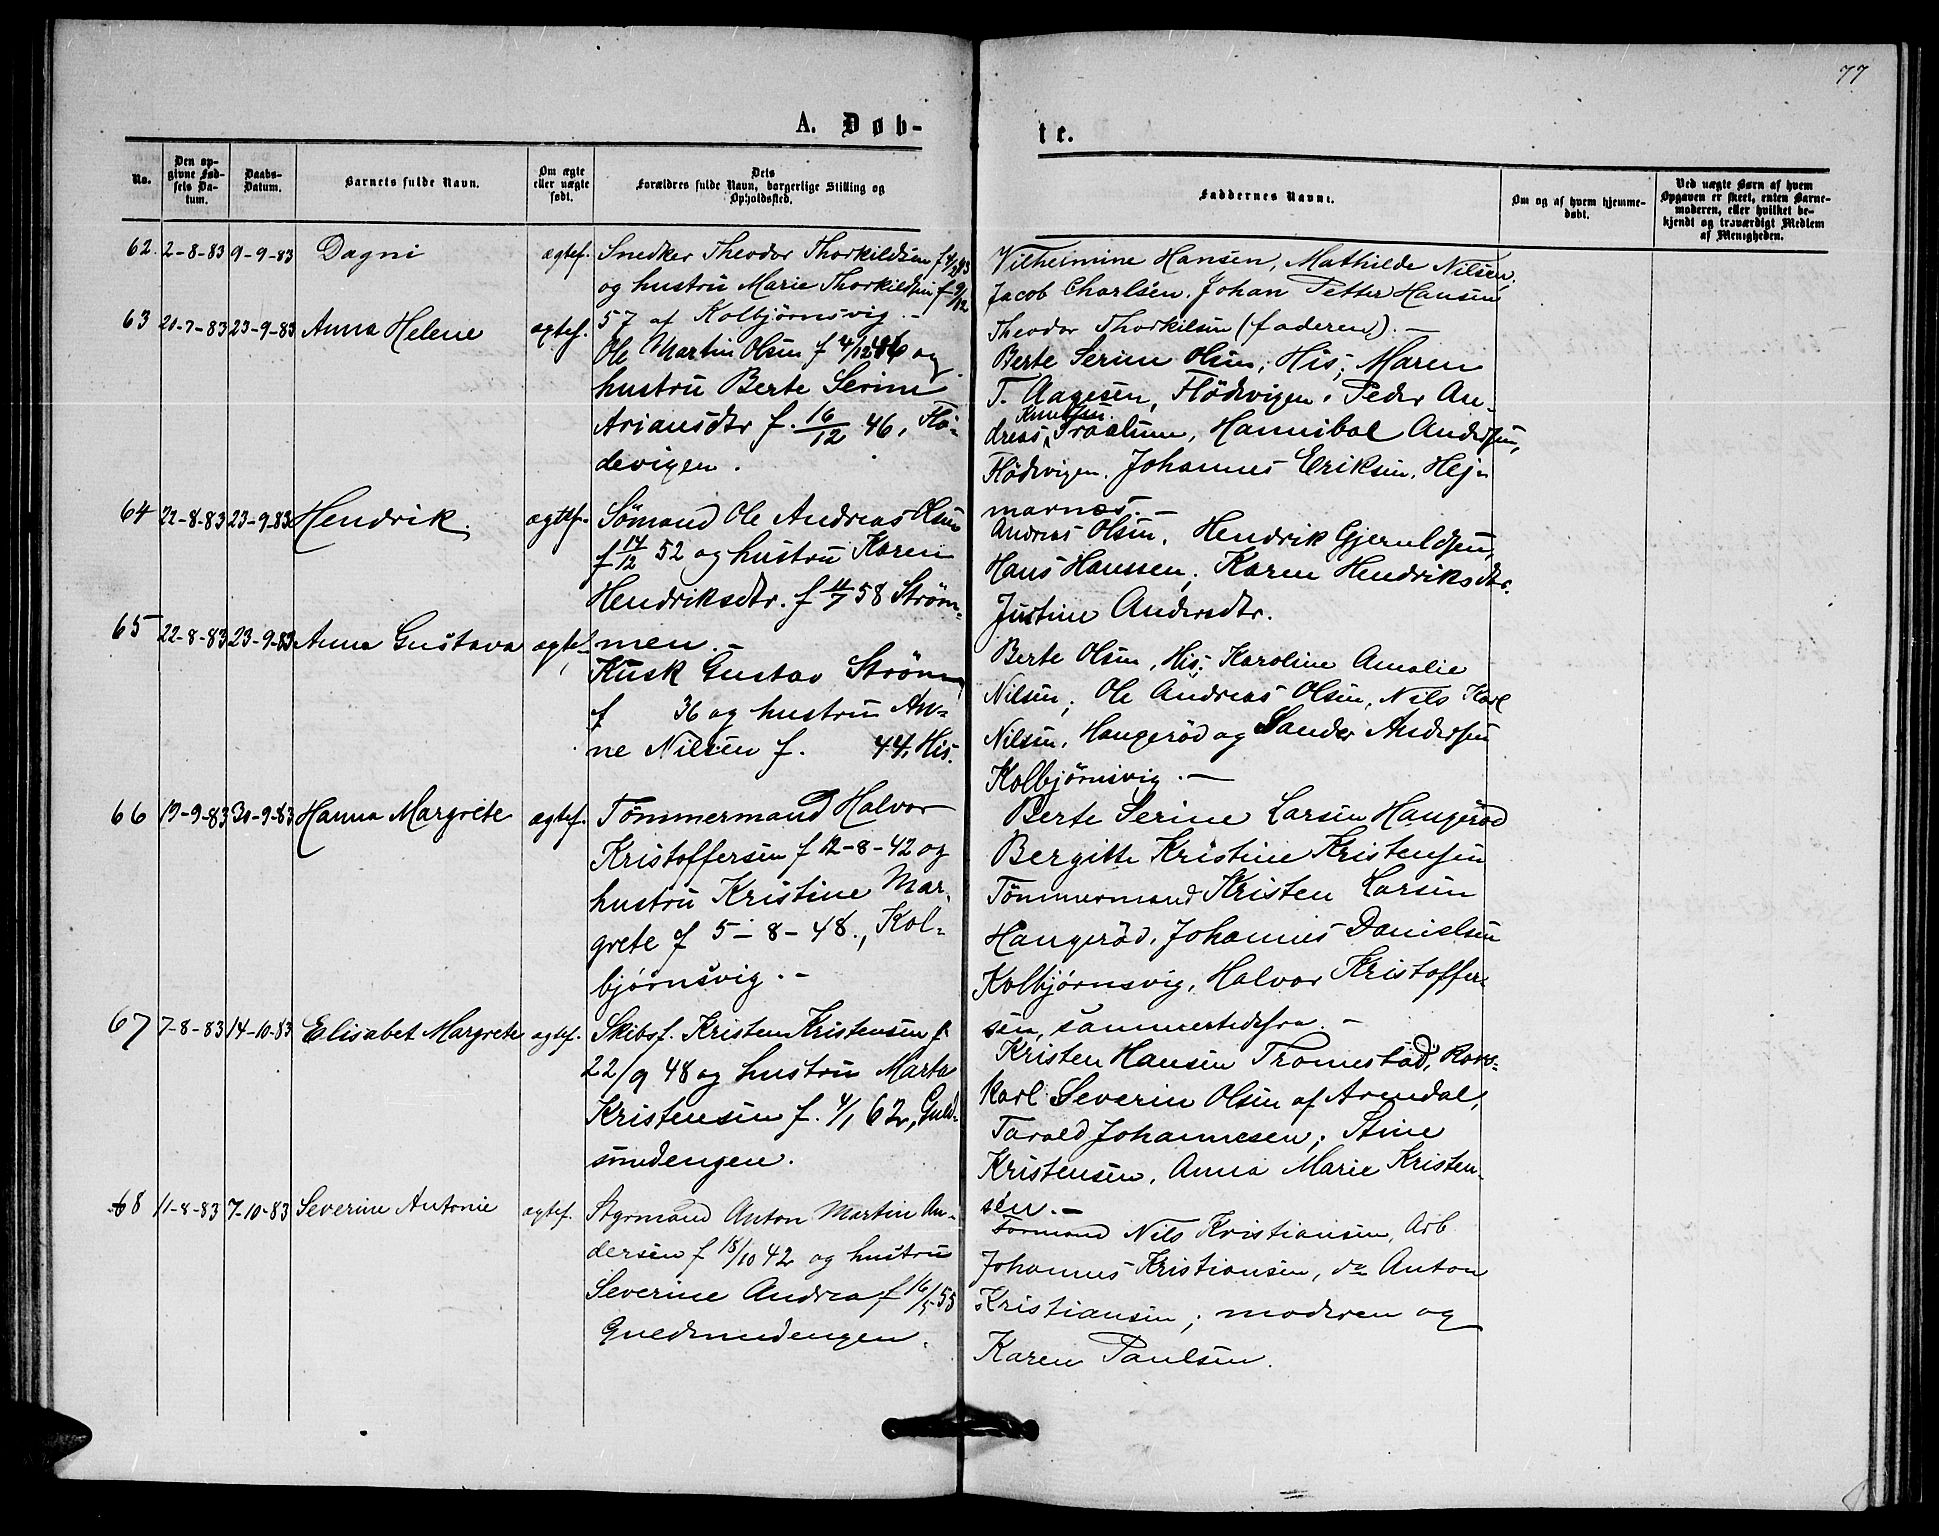 77
A. Døb-
te.
No.
Den op-
givne Fød-
sels Da-
tum.
Daabs-
Datum.
Barnets fulde Navn.
Om ægte
eller uægte
født.
Dets
Forældres fulde Navn, borgerlige Stilling og
Opholdssted.
Faddernes Navne.
Om og af hvem hjemme-
døbt.
Ved uægte Børn af hvem
Opgaven er skeet, enten Barne-
moderen, eller hvilket be-
kjendt og troværdigt Medlem
af Menigheden.
62. 2-8-83 9-9-83 Dagni ægtef. Snedker Theodor Thorkildsen f
og hustru Marie Thorkildsen f 9/12
57 af Kolbjørnsvig. -
Vilhermine Hansen, Mathilde Nilsen,
Jacob Charlsen, Johan Petter Hansen
Theodor Thorkilsen (faderen). -
63 21-7-83 23-9-83 Anna Helene ægtef.
Ole Martin Olsen f 4/12 og
hustru Berte Serine
Ariansdtr f. 16/12 46, Flö-
devigen.
Berte Serine Olsen, His, Maren
T. Aagesen, Flödevigen, Peder An-
Knudsen
dreas Traalum, Hannibal Andersen,
Flödevigen. Johannes Eriksen, Hej-
marnæs. -
64 22-8-83 23-9-83 Hendrik. ægtef. Sömand Ole Andreas Olsen
f 14/12 52 og hustru Karen
Hendriksdtr. f 11/7 58 Ström-
men. -
Andreas Olsen, Hendrik Gjeruldsen,
Hans Hanssen, Karen Hendriksdtr.
Justine Andersdtr.
65 22-8-83 23-9-83 Anna Gustava ægtef.
Kusk Gustav Ström
f 36 og hustru An-
ne Nilsen f. 44, His.
Berte Olsen, His, Karoline Amalie
Nilsen, Ole Andreas Olsen, Nils Karl
Nilsen, Haugeröd og Sander Andersen
Kolbjörnsvig. -
66 19-9-83 30-9-83 Hanna Margrete ægtef. Tömmermand Halvor
Kristoffersen f 12-8-42 og
hustru Kristine Mar-
grete f 5-8-48., Kol-
bjørnsvig. -
Berte Serine Larsen Haugeröd
Bergitte Kristine Kristensen
Tömmermand Kristen Larsen
Haugeröd, Johannes Danielsen
Kolbjörnsvig, Halvor Kristoffer-
sen, sammestedsfra. -
67 7-8-83 14-10-83 Elisabet Margrete ægtef. Skibsf. Kristen Kristensen f
22/9 48 og hustru Marta
Kristensen f. 4/1 62, Guld-
smedengen.
Kristen Hansen Tromestad,
Karl Severin Olsen af Arendal,
Tarald Johannesen, Stine
Kristensen, Anna Marie Kristen-
sen. -
68 11-8-83 7-10-83 Severine Antonie ægtef. Styrmand Anton Martin An-
dersen f 18/10 42 og hustru
Severine Andrea f 16/5 55
Guldsmedengen.
Formand Nils Kristiansen, Arb
Johannes Kristiansen, do Anton
Kristiansen, moderen og
Karen Paulsen.